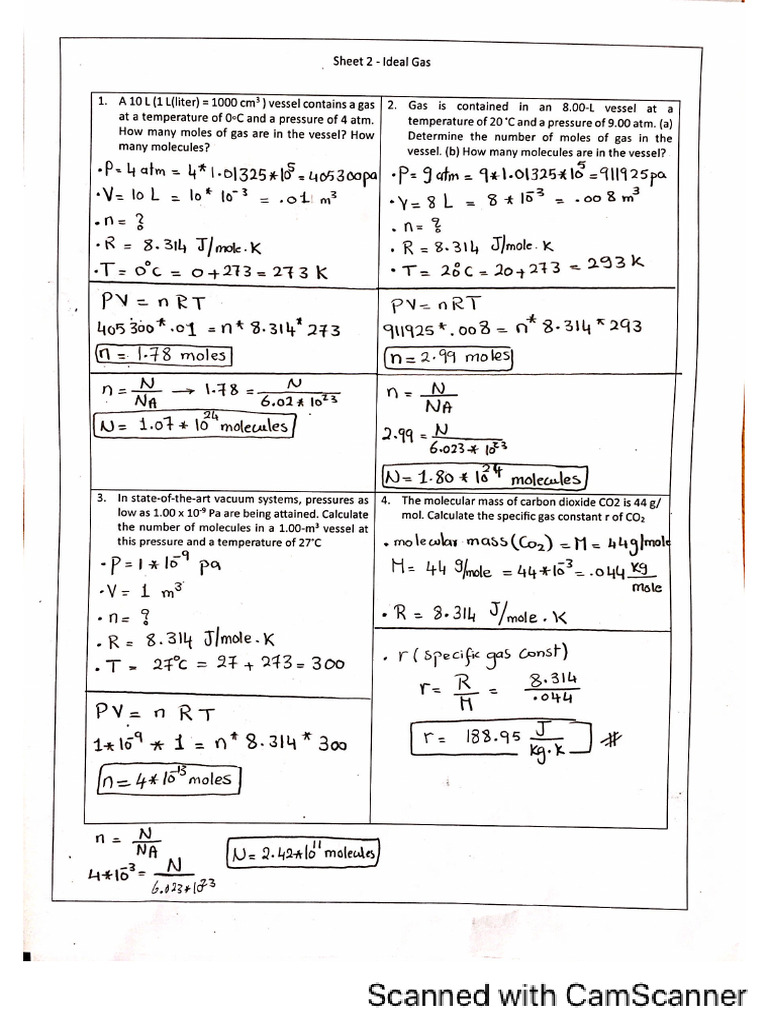 Sheet 2 - Ideal Gas
1. A 10 L (1 L(liter) = 1000 cm³ ) vessel contains a gas
at a temperature of 0◦C and a pressure of 4 atm.
How many moles of gas are in the vessel? How
many molecules?
• P = 4 atm = 4 * 1.01325 * 10⁵ = 405300 pa
• V = 10 L = 10 * 10⁻³ = .01 m³
• n = ?
• R = 8.314 J/mole.K
• T = 0°C = 0 + 273 = 273 K
PV = nRT
405300 * .01 = n * 8.314 * 273
n = 1.78 moles
n = N/NA → 1.78 = N/6.02 * 10²³
N = 1.07 * 10²⁴ molecules
2. Gas is contained in an 8.00-L vessel at a
temperature of 20 °C and a pressure of 9.00 atm. (a)
Determine the number of moles of gas in the
vessel. (b) How many molecules are in the vessel?
• P = 9 atm = 9 * 1.01325 * 10⁵ = 911925 pa
• V = 8 L = 8 * 10⁻³ = .008 m³
• n = ?
• R = 8.314 J/mole.K
• T = 20°C = 20 + 273 = 293 K
PV = nRT
911925 * .008 = n * 8.314 * 293
n = 2.99 moles
n = N/NA
2.99 = N/6.023 * 10²³
N = 1.80 * 10²⁴ molecules
3. In state-of-the-art vacuum systems, pressures as
low as 1.00 x 10⁻⁹ Pa are being attained. Calculate
the number of molecules in a 1.00-m³ vessel at
this pressure and a temperature of 27°C
• P = 1 * 10⁻⁹ pa
• V = 1 m³
• n = ?
• R = 8.314 J/mole.K
• T = 27°C = 27 + 273 = 300
PV = nRT
1 * 10⁻⁹ * 1 = n * 8.314 * 300
n = 4 * 10⁻¹³ moles
n = N/NA
4 * 10⁻³ = N/6.023 * 10²³
N = 2.42 * 10¹¹ molecules
4. The molecular mass of carbon dioxide CO2 is 44 g/
mol. Calculate the specific gas constant r of CO₂
• molecular mass (Co₂) = M = 44 g/mole
M = 44 g/mole = 44 * 10⁻³ = .044 kg/mole
• R = 8.314 J/mole.K
• r (specific gas const)
r = R/M = 8.314/.044
r = 188.95 J/kg.K #
Scanned with CamScanner